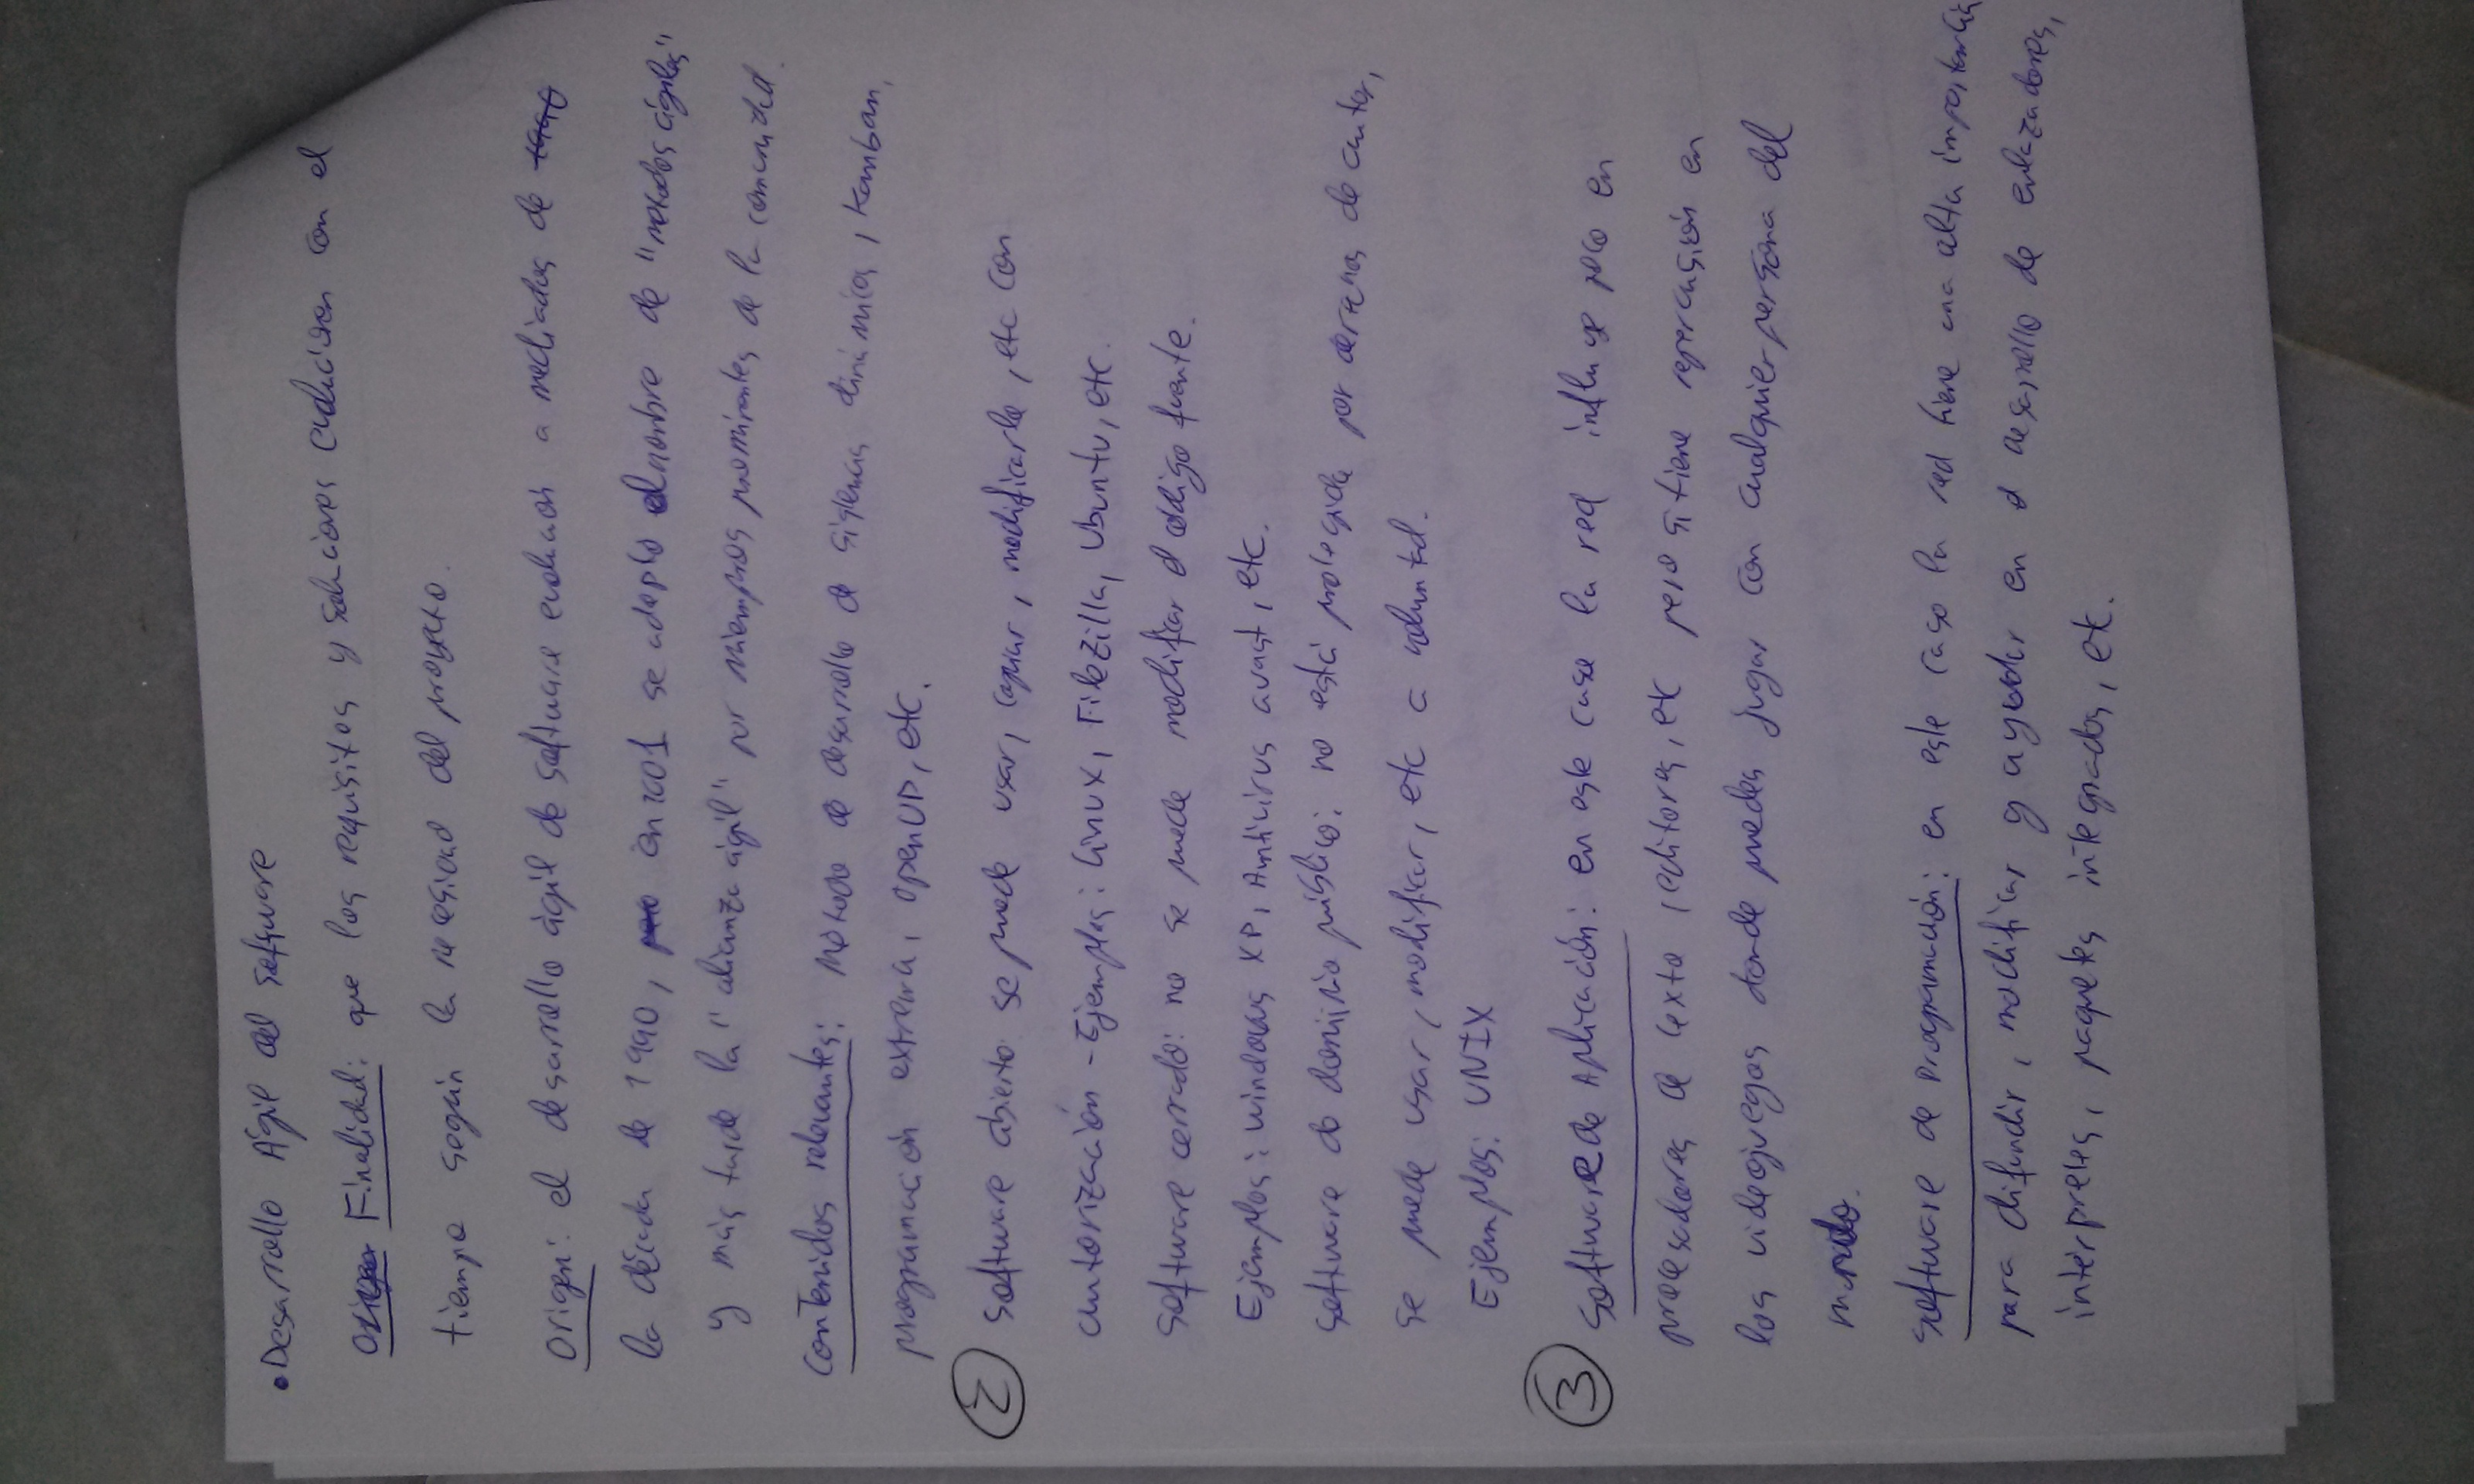 • Desarrollo Ágil del software
Origen Finalidad: que los requisitos y soluciones evolucionen con el
tiempo según la necesidad del proyecto.
Origen: el desarrollo ágil de software evolucionó a mediados de 1990
la década de 1990, pero en 2001 se adoptó el nombre de "métodos ágiles"
y más tarde la "alianza ágil" por miembros prominentes de la comunidad.
Contenidos relevantes: Método de desarrollo de sistemas dinámicos, Kanban,
programación extrema, OpenUP, etc.
2 Software abierto se puede usar, copiar, modificarlo, etc con
autorización - Ejemplos: Linux, FileZilla, Ubuntu, etc.
Software cerrado: no se puede modificar el código fuente.
Ejemplos: windows XP, Antivirus avast, etc.
Software de dominio público: no está protegida por derechos de autor,
se puede usar, modificar, etc a voluntad.
Ejemplos: UNIX
3 Software de Aplicación: en este caso la red influye poco en
procesadores de texto, editores, etc pero si tiene repercusión en
los videojuegos donde puedes jugar con cualquier persona del
mundo.
Software de Programación: en este caso la red tiene una alta importancia
para difundir, modificar y ayudar en el desarrollo de enlazadores,
intérpretes, paquetes integrados, etc.